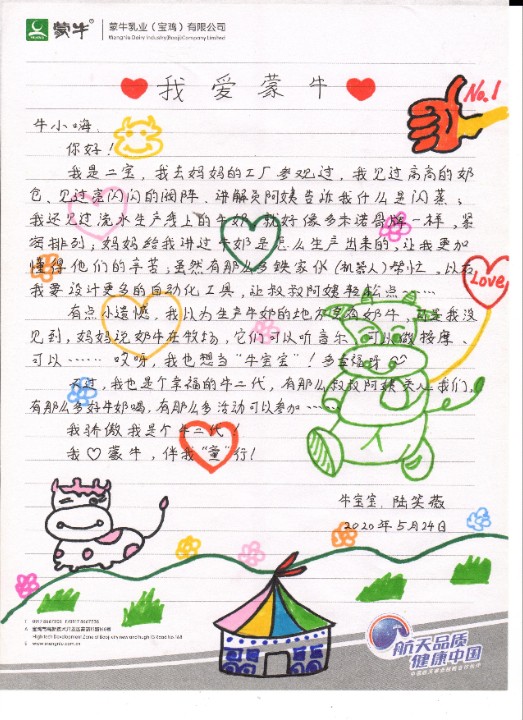 蒙牛 蒙牛乳业（宝鸡）有限公司
我爱蒙牛
No.1
牛小嗨：
你好！
我是二宝，我去妈妈的工厂参观过，我见过高高的奶
仓、见过亮闪闪的阀阵、讲解员阿姨告诉我什么是闪蒸；
我还见过流水生产线上的牛奶，就好像多米诺骨牌一样，紧
密排列；妈妈给我讲过牛奶是怎么生产出来的，让我更加
懂得他们的辛苦；虽然有那么多铁家伙（机器人）帮忙，以后
我要设计更多的自动化工具，让叔叔阿姨轻松点……
Love
有点小遗憾，我以为生产牛奶的地方有奶牛，可是我没
见到，妈妈说奶牛在牧场，它们可以听音乐、可以做按摩、
可以……哎呀，我也想当“牛宝宝”！多幸福呀
不过，我也是个幸福的牛二代，有那么叔叔阿姨关人我们，
有那么多好牛奶喝，有那么多活动可以参加……
我骄傲我是个牛二代！
我♡蒙牛，伴我“童”行！
牛宝宝：陆笑薇
2020年5月24日
航天品质
健康中国